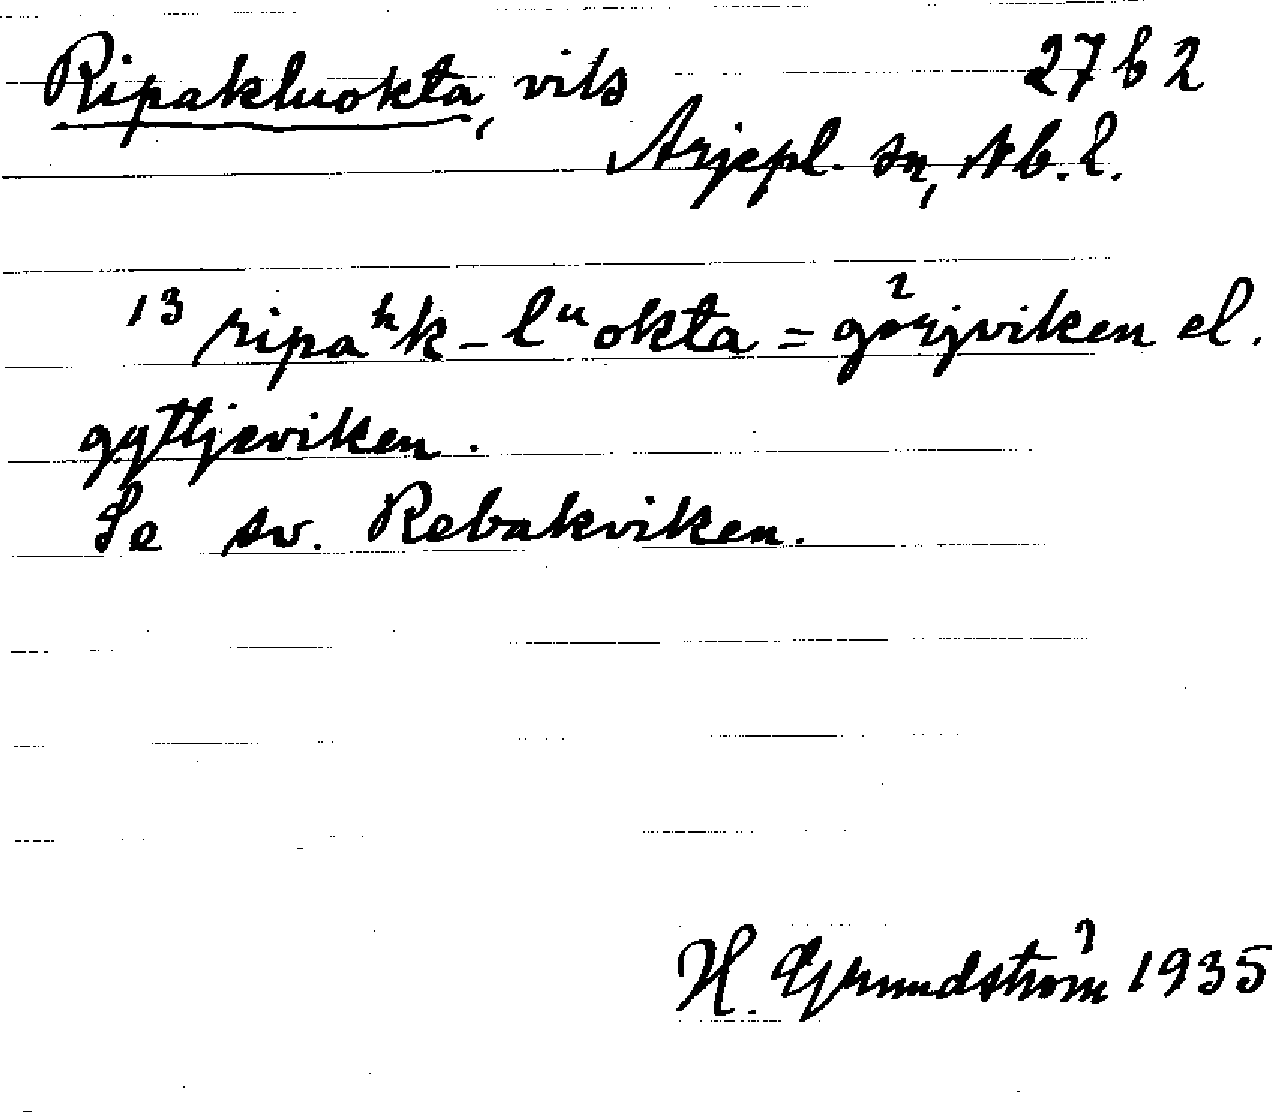 Ripakluokta, vik 27 b 2
Arjepl. sn, Nb. l.
13 ripaʰk-lᵘokta = görjviken el.
gyttjeviken.
Se sv. Rebakviken.
H. Grundström 1935